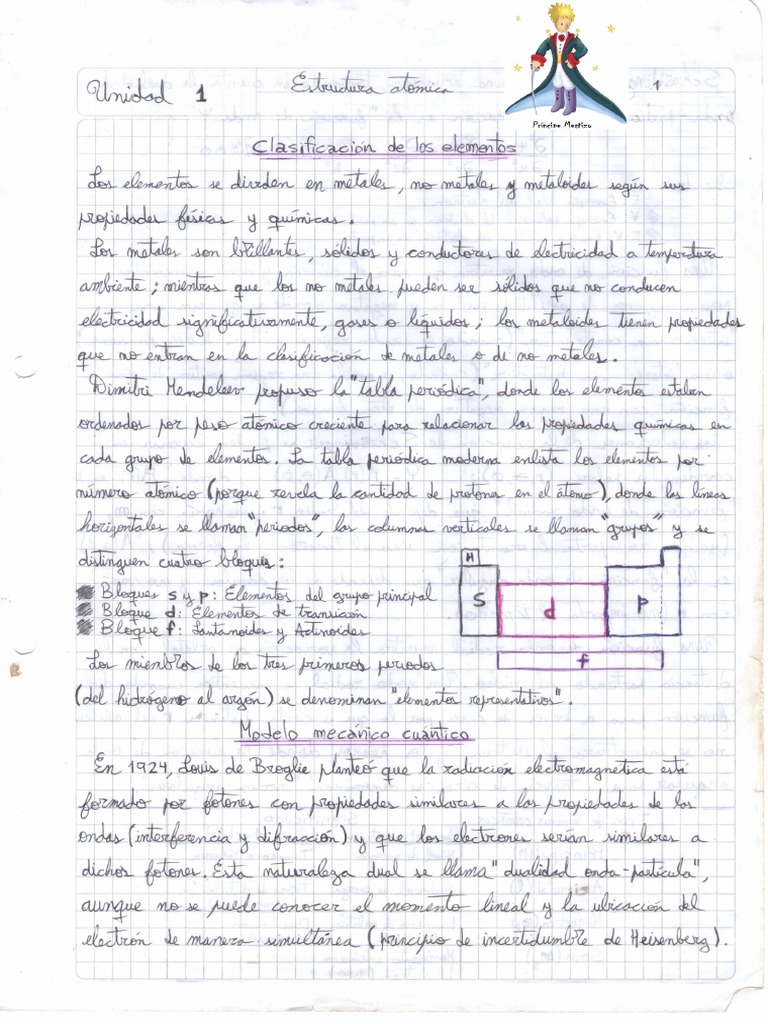 Unidad 1 Estructura atómica 1
Príncipe Mestizo
Clasificación de los elementos
Los elementos se dividen en metales, no metales y metaloides según sus
propiedades físicas y químicas.
Los metales son brillantes, sólidos y conductores de electricidad a temperatura
ambiente; mientras que los no metales pueden ser sólidos que no conducen
electricidad significativamente, gases o líquidos; los metaloides tienen propiedades
que no entran en la clasificación de metales o de no metales.
Dimitri Mendeleev propuso la "tabla periódica", donde los elementos estaban
ordenados por peso atómico creciente para relacionar las propiedades químicas en
cada grupo de elementos. La tabla periódica moderna enlista los elementos por
número atómico (porque revela la cantidad de protones en el átomo), donde las líneas
horizontales se llaman "periodos", las columnas verticales se llaman "grupos" y se
distinguen cuatro bloques:
Bloques s y p: Elementos del grupo principal
Bloque d: Elementos de transición
Bloque f: Lantanoides y Actinoides
H
S d p
f
Los miembros de los tres primeros periodos
(del hidrógeno al argón) se denominan "elementos representativos".
Modelo mecánico cuántico
En 1924, Louis de Broglie planteó que la radiación electromagnetica está
formado por fotones con propiedades similares a las propiedades de las
ondas (interferencia y difracción) y que los electrones serían similares a
dichos fotones. Esta naturaleza dual se llama "dualidad onda-partícula",
aunque no se puede conocer el momento lineal y la ubicación del
electrón de manera simultánea (principio de incertidumbre de Heisenberg).